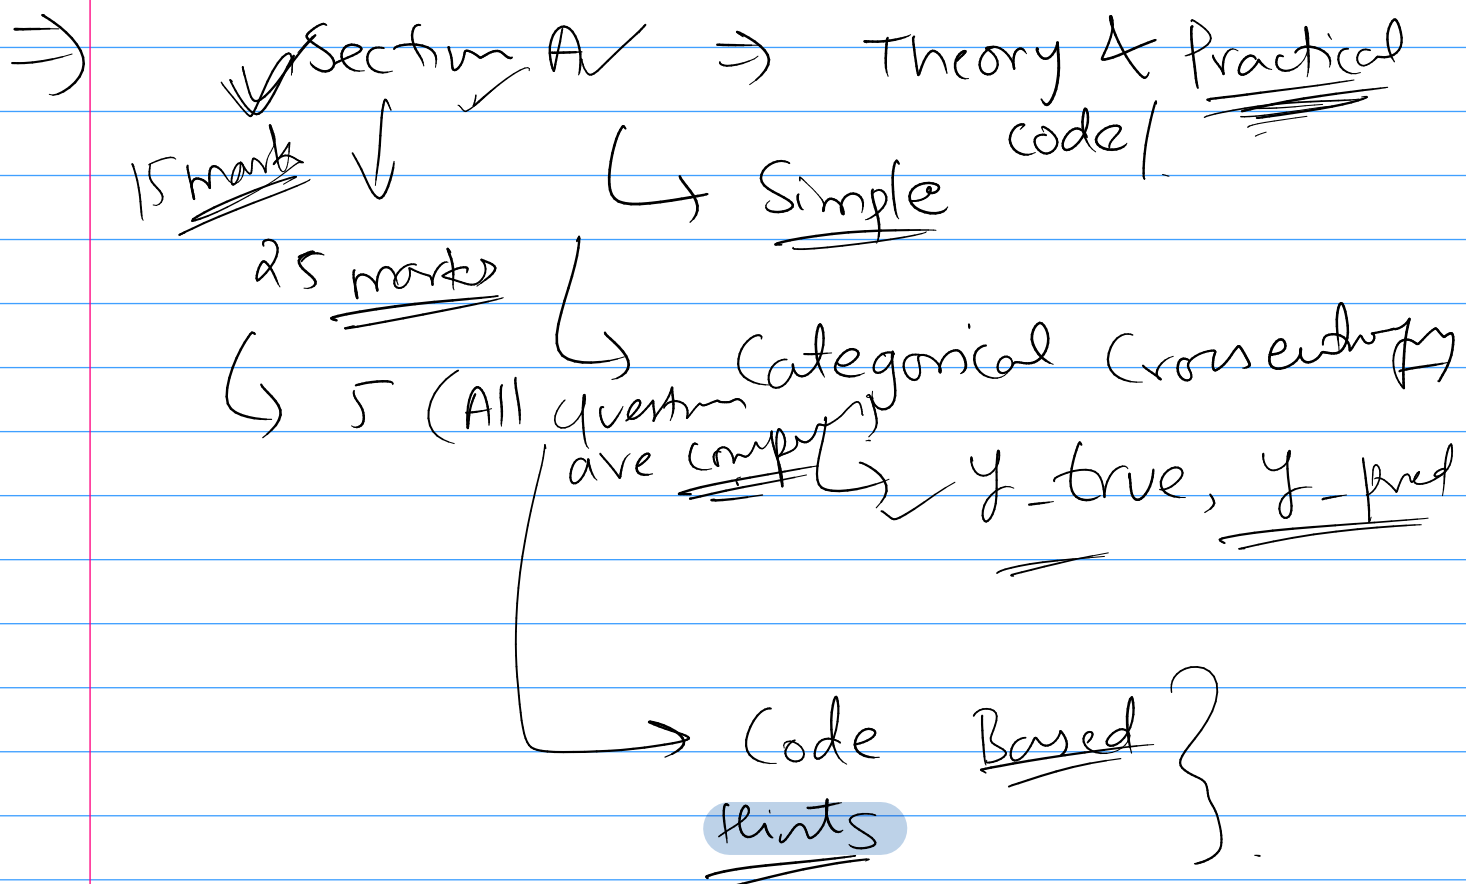 ⇒ Section A ⇒ Theory & Practical
code
15 marks
Simple
25 marks
Categorical Crossentropy
5 (All question
are compulsory)
y_true, y_pred
Code Based
Hints